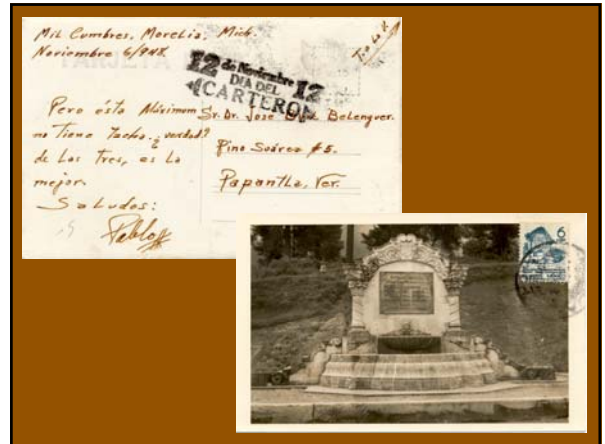 Mil Cumbres, Morelia, Mich.
Noviembre 6/948.
TARJETA
12 de Noviembre 12
DIA DEL
CARTERO
Pero ésta Máximum
no tiene tacha. ¿verdad?
de Las Tres, es La
mejor.
Saludos:
Pablo
Sr. Dr. Jose Belenguer.
Pino Suárez #5.
Papantla, Ver.
6